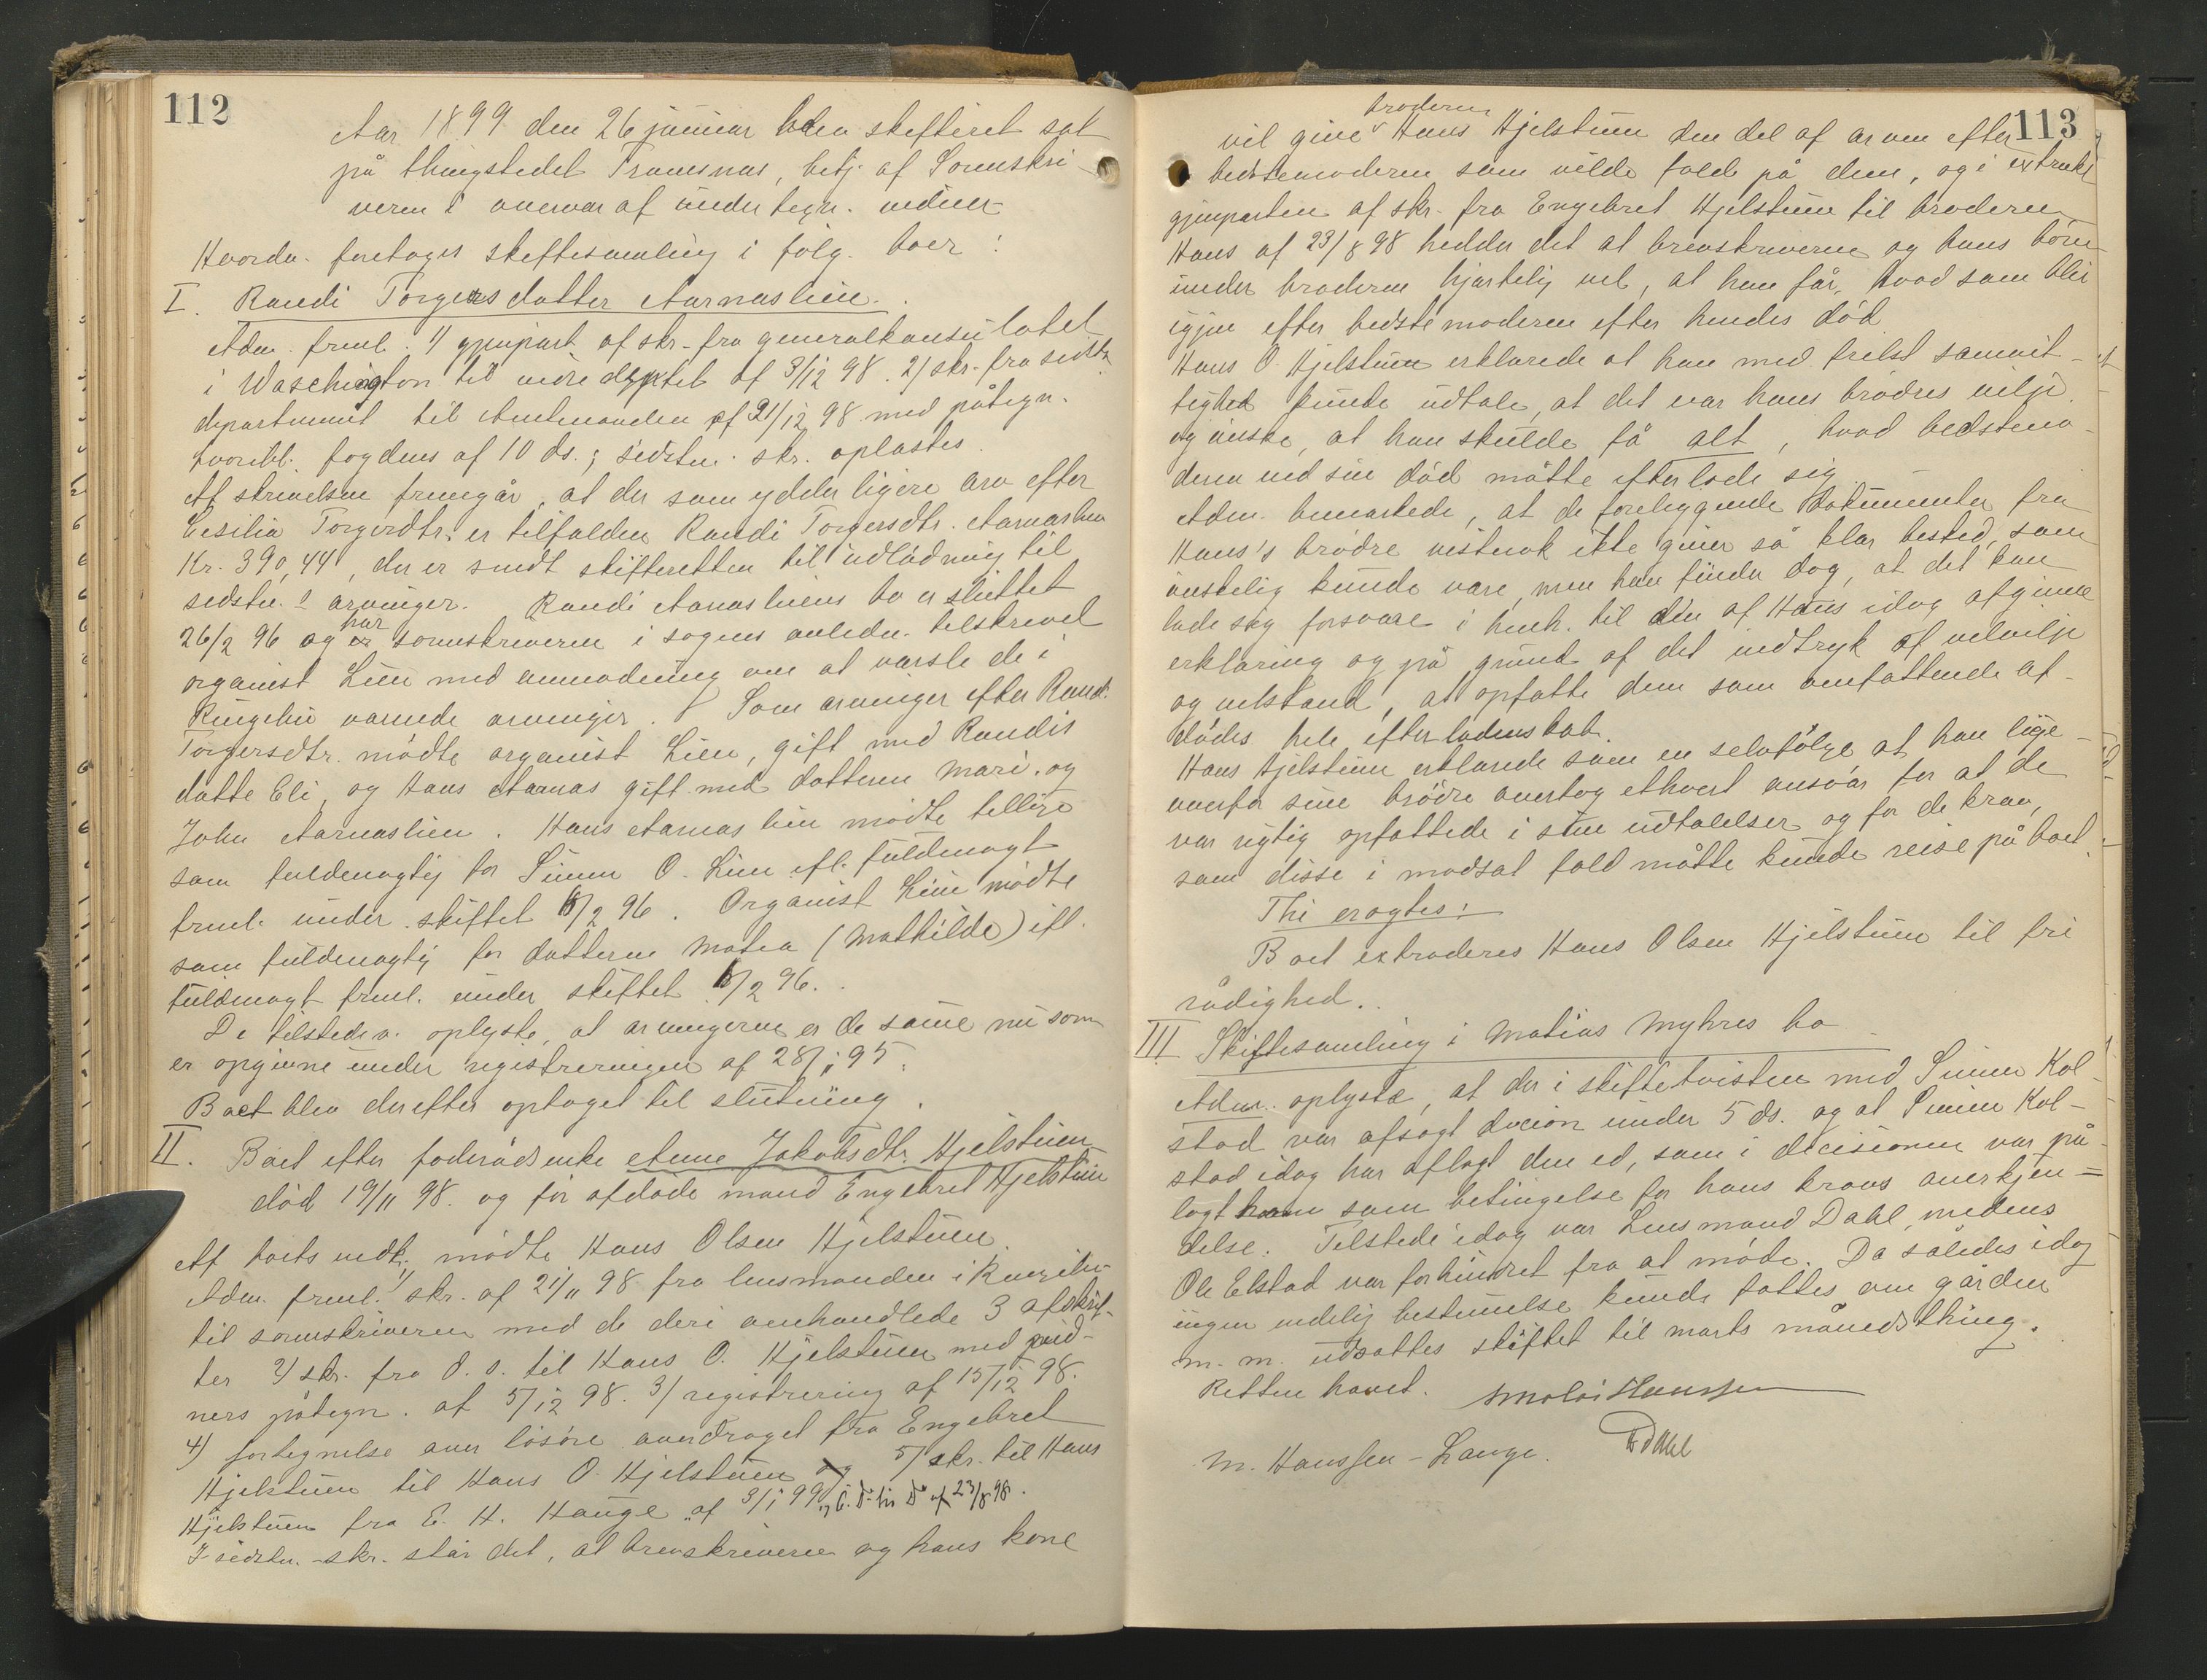 112
Aar 1899 den 26 januar blev skifteret sat
på thingstedet Tromsnæs, betj. af Sorenskri-
veren i overvær af undertegn. vidner
Hvorda. foretoges skiftesamling i følg. boer:
I. Randi Torgersdatter Aarnæslien.
Adm. freml. 1/ gjenpart af skr. fra generalkonsulatet
i Waschington til indredeptet af 3/12 98. 2/ skr. fra sidstn.
departement til Amtmanden af 21/12 98 med påtegn.
hvoribl. fogdens af 10 ds.; sidstn. skr. oplæstes
Af skrivelsen fremgår, at der som yderligere arv efter
Cesilia Torgersdtr. er tilfalden Randi Torgersdtr. Aarnæslien
Kr. 390,44, der er sendt skifteretten til udlodning til
sidstn.s arvinger. Randi Aarnæsliens bo er sluttet
26/2 96 og har sorenskriveren i sagens anledn. tilskrevet
organist Lien med anmodning om at varsle de i
Ringebu værende arvinger. Som arvinger efter Randi
Torgersdtr. mødte organist Lien, gift med Randis
datte Eli, og Hans Aarnæs gift med datteren Mari. og
John Aarnæslien. Hans Aarnæslien mødte tillige
som fuldmægtig for Simen O. Lien ifl. fuldmagt
freml. under skiftet 6/2 96. Organist Lien mødte
som fuldmægtig for datteren Matea (Mathilde) ifl.
fuldmagt freml. under skiftet 6/2 96.
De tilstedev. oplyste, at arvingerne er de same nu som
er opgivne under registreringen af 28/1 95.
Boet blev derefter optaget til slutning.
II. Boet efter foderådsenke Anne Jakobsdtr. Hjelstuen
død 19/11 98. og før afdøde mand Engebret Hjelstuen
Af boets vedk. mødte Hans Olsen Hjelstuen
Adm. freml. 1/ skr. af 21/11 98 fra lensmanden i Ringebu
til sorenskriveren med de deri omhandlede 3 afskrif-
ter 2/ skr. fra d. s. til Hans O. Hjelstuen med vid-
ners påtegn. af 5/12 98. 3/ registrering af 15/12 98.
4) fortegnelse over løsøre overdraget fra Engebret
Hjelstuen til Hans O. Hjelstuen og 5/ skr. til Hans
Hjelstuen fra E. H. Hauge af 3/1 99 og 6. do til do af 23/8 98.
I sidstn. skr. står det, at brevskriveren og hans kone
113
broderen
vil give Hans Hjelstuen den del af arven efter
bedstemoderen som vilde fald på dem, og i extrakt
gjenparten af skr. fra Engebret Hjelstuen til broderen
Hans af 23/8 98 hedder det at brevskriveren og hans børn
under broderen hjærtelig vel, at han får, hvad som blir
igjen efter bedstemoderen efter hendes død
Hans O. Hjelstuen erklærede at han med frelst samvit-
tighed kunde udtale, at det var hans brødres vilje
og ønske, at han skulde få alt, hvad bedstemo-
deren ved sin død måtte efterlade sig
Adm. bemærkede, at de foreliggende dokumenter fra
Hans's brødre vistnok ikke giver så klar besked, som
ønskelig kunde være, men han finder dog, at det kan
lade sig forsvare i henh. til den af Hans idag afgivne
erklæring og på grund af det indtryk af velvilje
og velstand, at opfatte dem som omfattende af-
dødes hele efterladenskab.
Hans Hjelstuen erklærede som en selvfølge at han lige-
overfor sine brødre overtog ethvert ansvar for at de
var rigtig opfattede i sine udtalelser og for de krav,
som disse i modsat fald måtte kunde reise på boet.
Thi eragtes:
Boet extraderes Hans Olsen Hjelstuen til fri
rådighed.
III Skiftesamling i Matias Myhres bo
Adm. oplyste, at der i skiftetvisten med Simen Kol-
stad var afsagt decion under 5 ds. og at Simen Kol-
stad idag har aflagt den ed, som i decisionen var på-
lagt ham som betingelse for hans kravs anerkjen-
delse. Tilstede idag var Lensmand Dahl, medens
Ole Elstad var forhindret fra at møde. Da således idag
ingen endelig bestemelse kunde fattes om gården
m. m. udsattes skiftet til marts månedsthing.
Retten hævet.
M. Hanssen-Lange.
Dahl